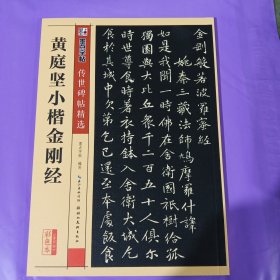 墨点字帖
传世碑帖精选
黄庭坚小楷金刚经
金剛般若波羅蜜經
姚秦三藏法師鳩摩羅什譯
如是我聞一時佛在舍衛國祇樹給孤
獨園與大比丘衆千二百五十人俱尒
時世尊食時著衣持鉢入舍衛大城乞
食於其城中次第乞已還至本處飯食